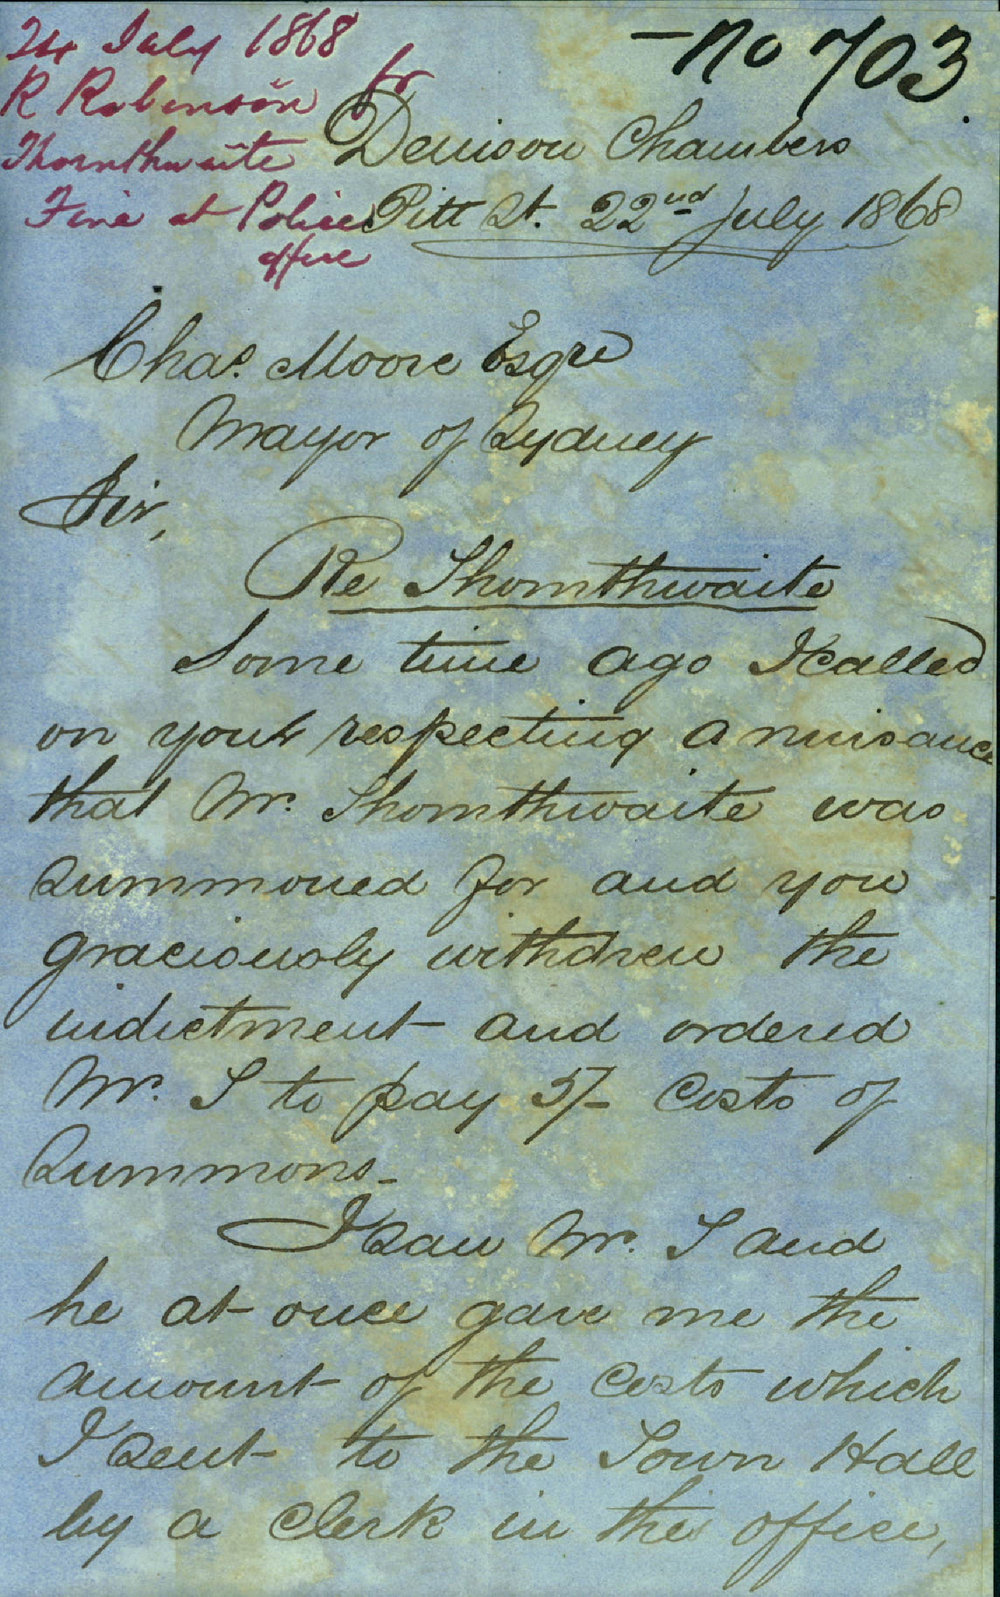 24 July 1868
R Robinson fr
Thornthwaite
Fine at Police
office
No 703
Denison Chambers
Pitt St. 22nd July 1868
Chas. Moore Esqre
Mayor of Sydney
Sir,
Re Thornthwaite
Some time ago I called
on your respecting a nuisance
that Mr. Thornthwaite was
summoned for and you
graciously withdrew the
indictment and ordered
Mr. T to pay 5/- Costs of
Summons -
I saw Mr. T and
he at once gave me the
amount of the Costs which
I sent to the Town Hall
by a Clerk in this office,